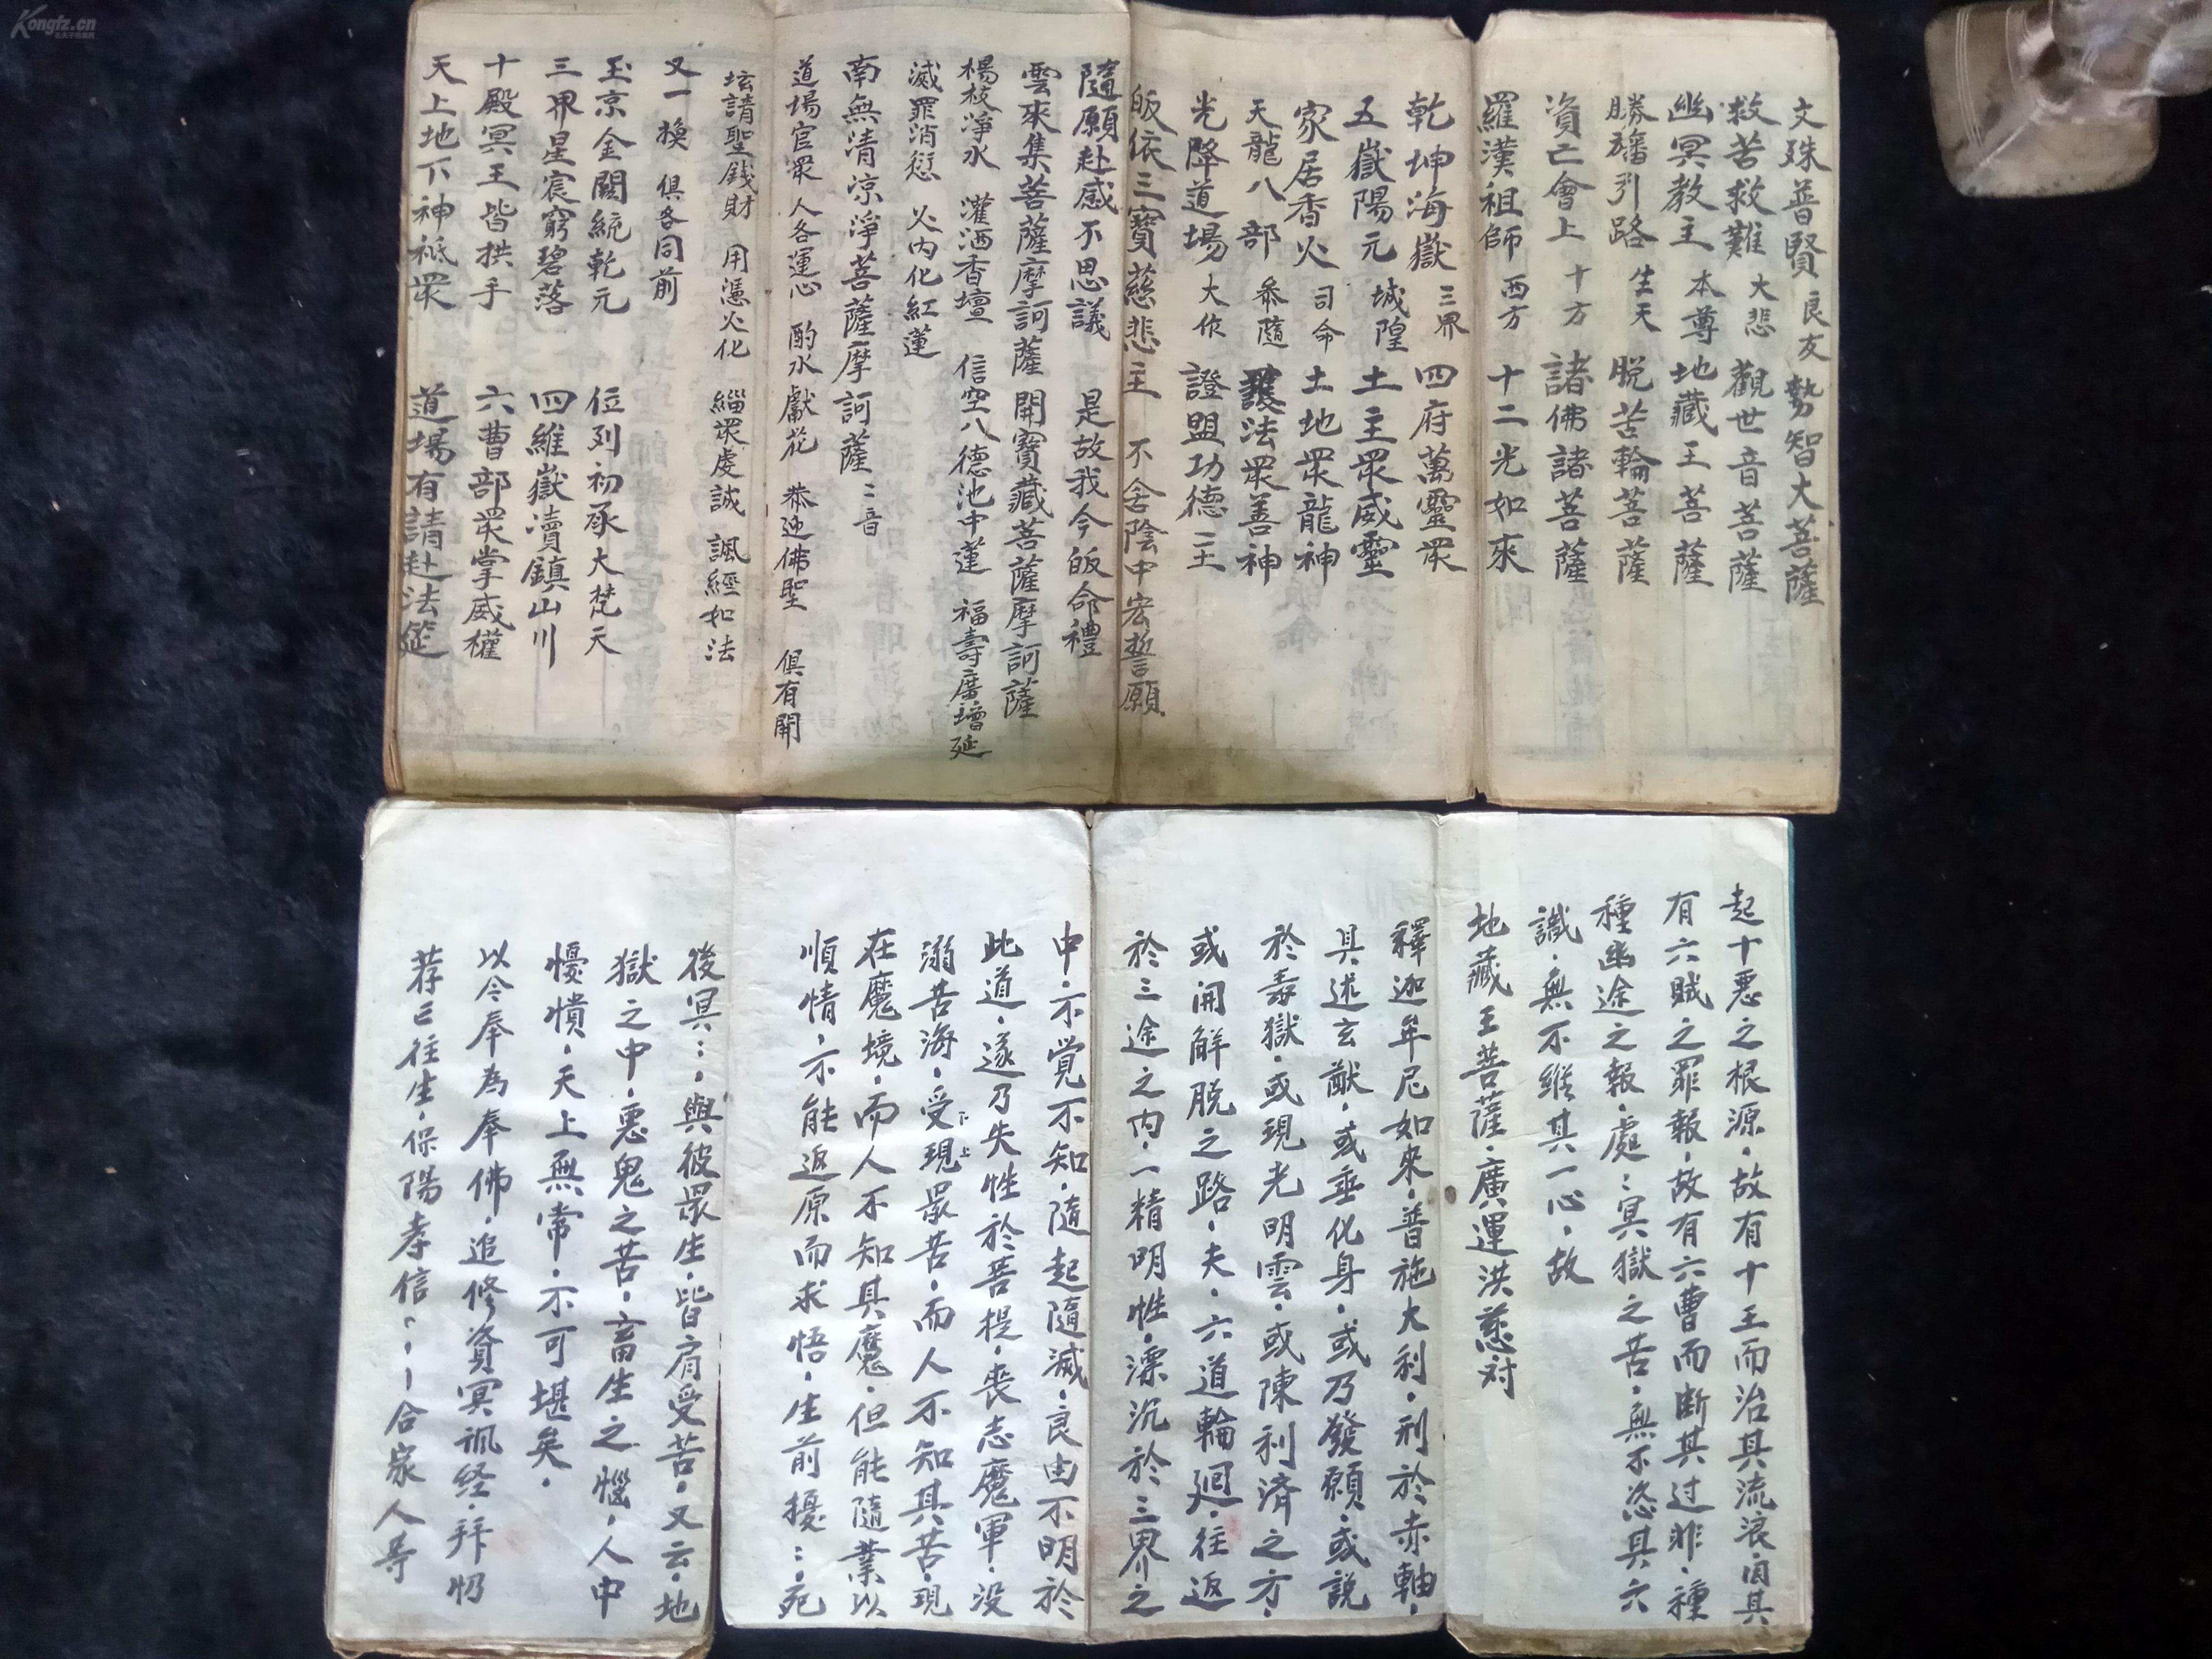 Kongfz.cn
文殊普賢 良友 勢智大菩薩
救苦救難 大悲 觀世音菩薩
幽冥教主 本尊 地藏王菩薩
勝旛引路 生天 脱苦輪菩薩
資亡會上 十方 諸佛諸菩薩
羅漢祖師 西方 十二光如來
乾坤海嶽 三界 四府萬靈眾
五嶽陽元 城隍 土主眾威靈
家居香火 司命 土地眾龍神
天龍八部 叅隨 護法眾善神
光降道場 大作 證盟功德主
皈依三寶慈悲主 不舍陰中宏誓願
隨願赴感不思議 是故我今皈命禮
雲來集菩薩摩訶薩 開寶藏菩薩摩訶薩
楊枝淨水 灌洒香壇 信空八德池中蓮 福壽廣增延
滅罪消愆 火内化紅蓮
南無清凉淨菩薩摩訶薩：二音
道場官眾 人各運心 酌水獻花 恭迎佛聖 俱有開
坛請聖錢財 用憑火化 緇眾虔誠 諷經如法
又一換 俱各同前
玉京金闕統乾元 位列初承大梵天
三界星宸窮碧落 四維嶽瀆鎮山川
十殿冥王皆拱手 六曹部眾掌威權
天上地下神祗眾 道場有請赴法筵
起十悪之根源，故有十王而治其流浪，因其
有六賊之罪報，故有六曹而断其过非，種
種幽途之報，處：冥獄之苦，無不恣其六
識，無不縱其一心，故
地藏王菩薩，廣運洪慈，対
釋迦牟尼如來，普施大利，刑於赤軸，
具述玄猷，或垂化身，或乃發願，或説
於毒獄，或現光明雲，或陳利済之方，
或開解脱之路，夫，六道輪廻，往返
於三途之内，一精明性，漂沉於三界之
中，不覚不知，隨起隨滅，良由不明於
此道，遂乃失性於菩提，喪志魔軍，没
溺苦海，受下現上眾苦，而人不知其苦，現
在魔境，而人不知其魔，但能隨業以
順情，不能返原而求悟，生前擾：：死
後冥：：與彼眾生，皆肩受苦，又云，地
獄之中，悪鬼之苦，畜生之惱，人中
憂憒，天上無常，不可堪矣，
以今奉為奉佛，追修資冥諷经，拜忏
荐亡往生，保陽孝信：：丨合家人等